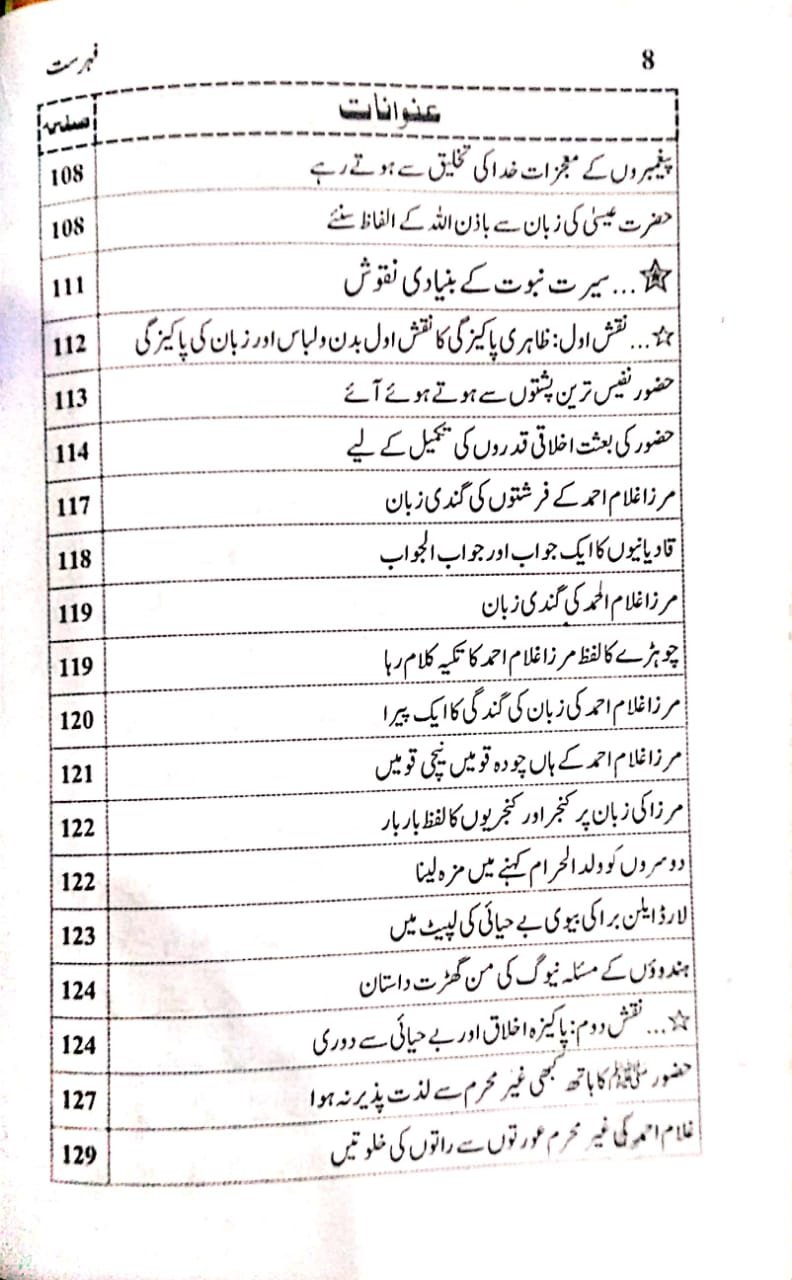 8 فہرست
عنوانات صفحہ
پیغمبروں کے معجزات خدا کی تخلیق سے ہوتے رہے 108
حضرت عیسیٰ کی زبان سے باذن اللہ کے الفاظ سنئے 108
☆...سیرت نبوت کے بنیادی نقوش 111
☆...نقش اول: ظاہری پاکیزگی کا نقش اول بدن ولباس اور زبان کی پاکیزگی 112
حضور نفیس ترین پشتوں سے ہوتے ہوئے آئے 113
حضور کی بعثت اخلاقی قدروں کی تکمیل کے لیے 114
مرزا غلام احمد کے فرشتوں کی گندی زبان 117
قادیانیوں کا ایک جواب اور جواب الجواب 118
مرزا غلام احمد کی گندی زبان 119
چوہڑے کا لفظ مرزا غلام احمد کا تکیہ کلام رہا 119
مرزا غلام احمد کی زبان کی گندگی کا ایک پیرا 120
مرزا غلام احمد کے ہاں چودہ قومیں نیچی قومیں 121
مرزا کی زبان پر کنجر اور کنجریوں کا لفظ بار بار 122
دوسروں کو ولد الحرام کہنے میں مزہ لینا 122
لارڈ ایلن برا کی بیوی بے حیائی کی لپیٹ میں 123
ہندوؤں کے مسئلہ نیوگ کی من گھڑت داستان 124
☆...نقش دوم: پاکیزہ اخلاق اور بے حیائی سے دوری 124
حضور ﷺ کا ہاتھ کبھی غیر محرم سے لذت پذیر نہ ہوا 127
غلام احمد کی غیر محرم عورتوں سے راتوں کی خلوتیں 129